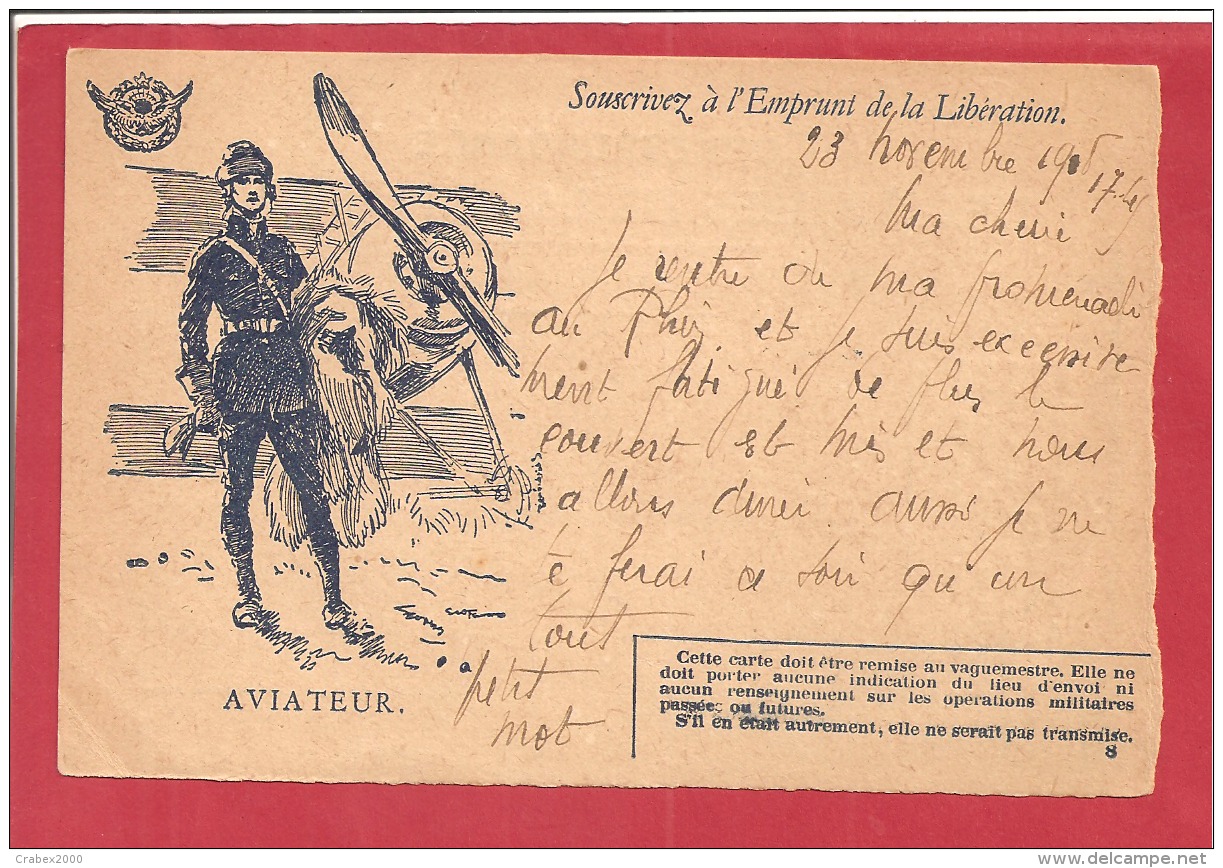 Souscrivez à l'Emprunt de la Libération.
23 novembre 1918
17 h
Ma cherie
Je rentre de ma promenade
au Rhin et je suis excessive
ment fatigué de plus le
couvert est mis et nous
allons diner aussi je ne
te ferai ce soir qu'un
tout
petit
mot
AVIATEUR.
Cette carte doit être remise au vaguemestre. Elle ne
doit porter aucune indication du lieu d'envoi ni
aucun renseignement sur les opérations militaires
passées ou futures.
S'il en était autrement, elle ne serait pas transmise.
8
Crabex2000
www.delcampe.net